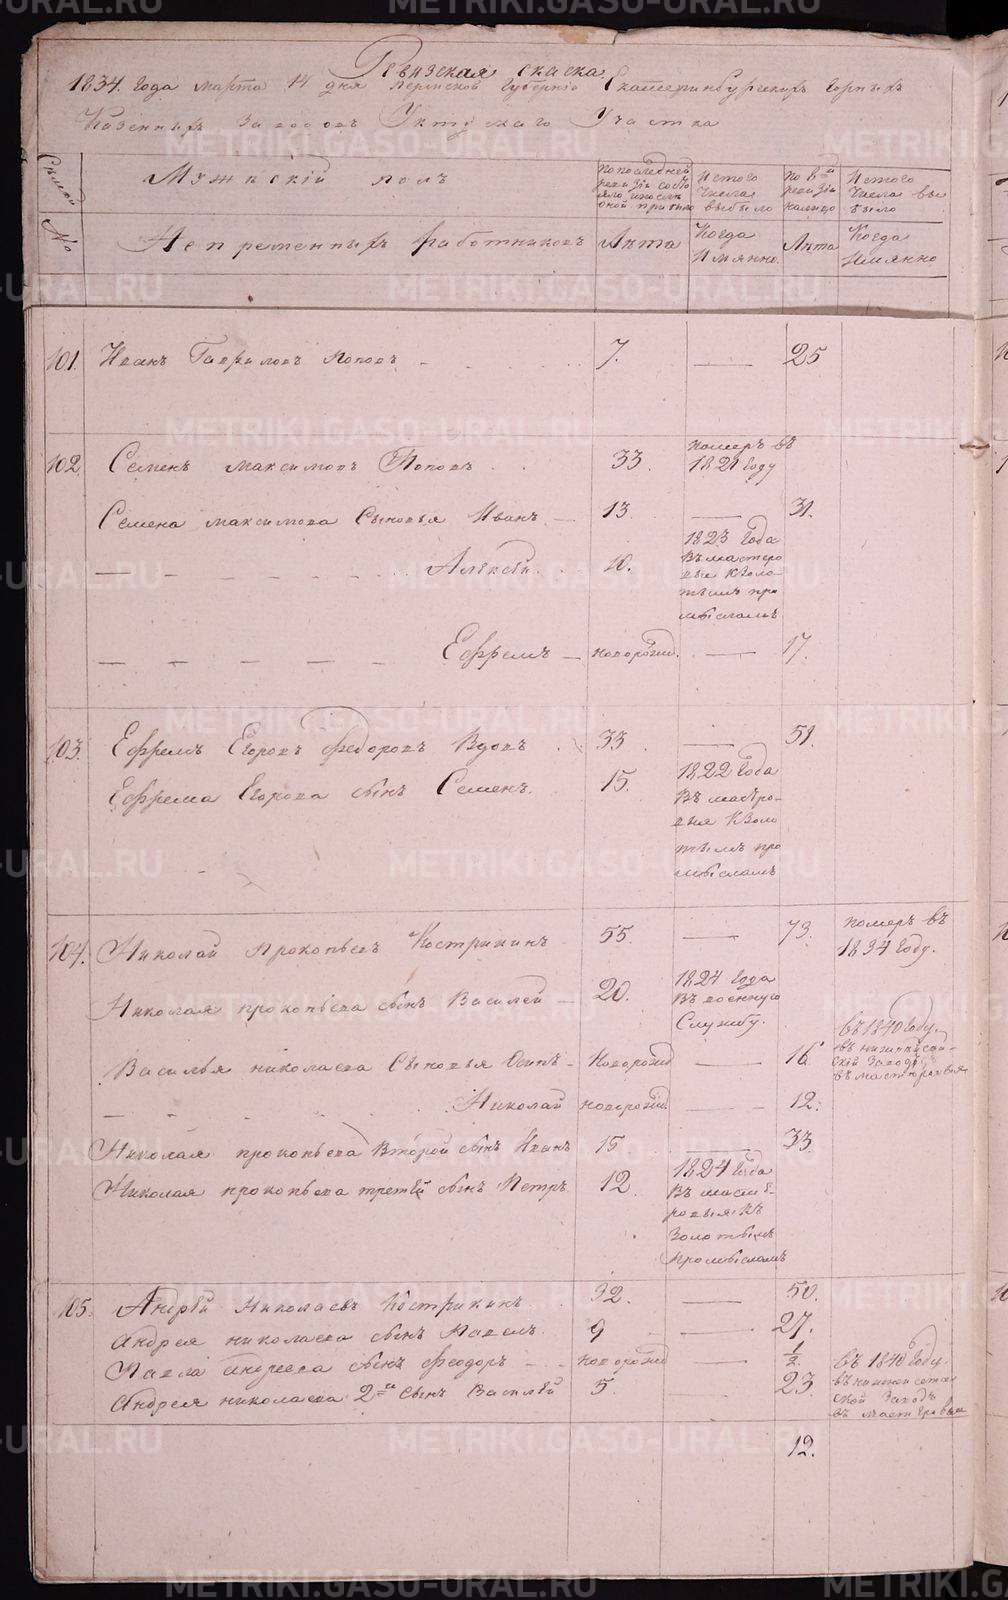 Ревизская скаска
1834 Года марта 14 дня Пермской Губернiи Екатеринбургскихъ Горныхъ
Казенныхъ Заводовъ Уктускаго Участка
Семей
№
Мужескiй полъ
По последней ревизiи состояло и после оной прибыло
Изтого числа выбыло
По 8й ревизiи налицо
Изтого числа выбыло
Непременныхъ работниковъ
Лета
Когда Имянно.
Лета
Когда Имянно
101. Иванъ Гавриловъ Поповъ 7. 25
102 Семенъ максимовъ Поповъ 33. померъ въ 1821 Году
Семена максимова Сыновья Иванъ 13 31.
Алексей 10. 1823 Года Въ мастеровые К Золотымъ промысламъ
Ефремъ новорожд. 17.
103. Ефремъ Егоровъ Федоровъ Вдовъ 33 51.
Ефрема Егорова сынъ Семенъ. 15. 1822 Года
Въ мастровыя К Золотымъ промысламъ
104. Николай Прокопьевъ Кострикинъ 55. 73. померъ въ 1834 Году.
Николая прокопьева сынъ Василей 20. 1824 Года Въ военную Службу.
Василья николаева Сыновья Осипъ Новорожд 16 въ 1840 Году. въ нижнiй сетскiй Заводъ въ мастеровыя
Николай новорожд. 12.
Николая прокопьева Второй сынъ Иванъ 15 33.
Николая прокопьева третей сынъ Петръ 12 1824 Года Въ мастеровыя Къ Золотымъ Промысламъ
105. Андрей Николаевъ Кострикинъ 32. 50.
Андрея николаева сынъ Павелъ. 9 27.
Павла андреева сынъ Феодоръ новорожд 1/2.
Андрея николаева 2й сынъ Василей 5. 23 въ 1840 Году. Заводъ
12.
METRIKI.GASO-URAL.RU